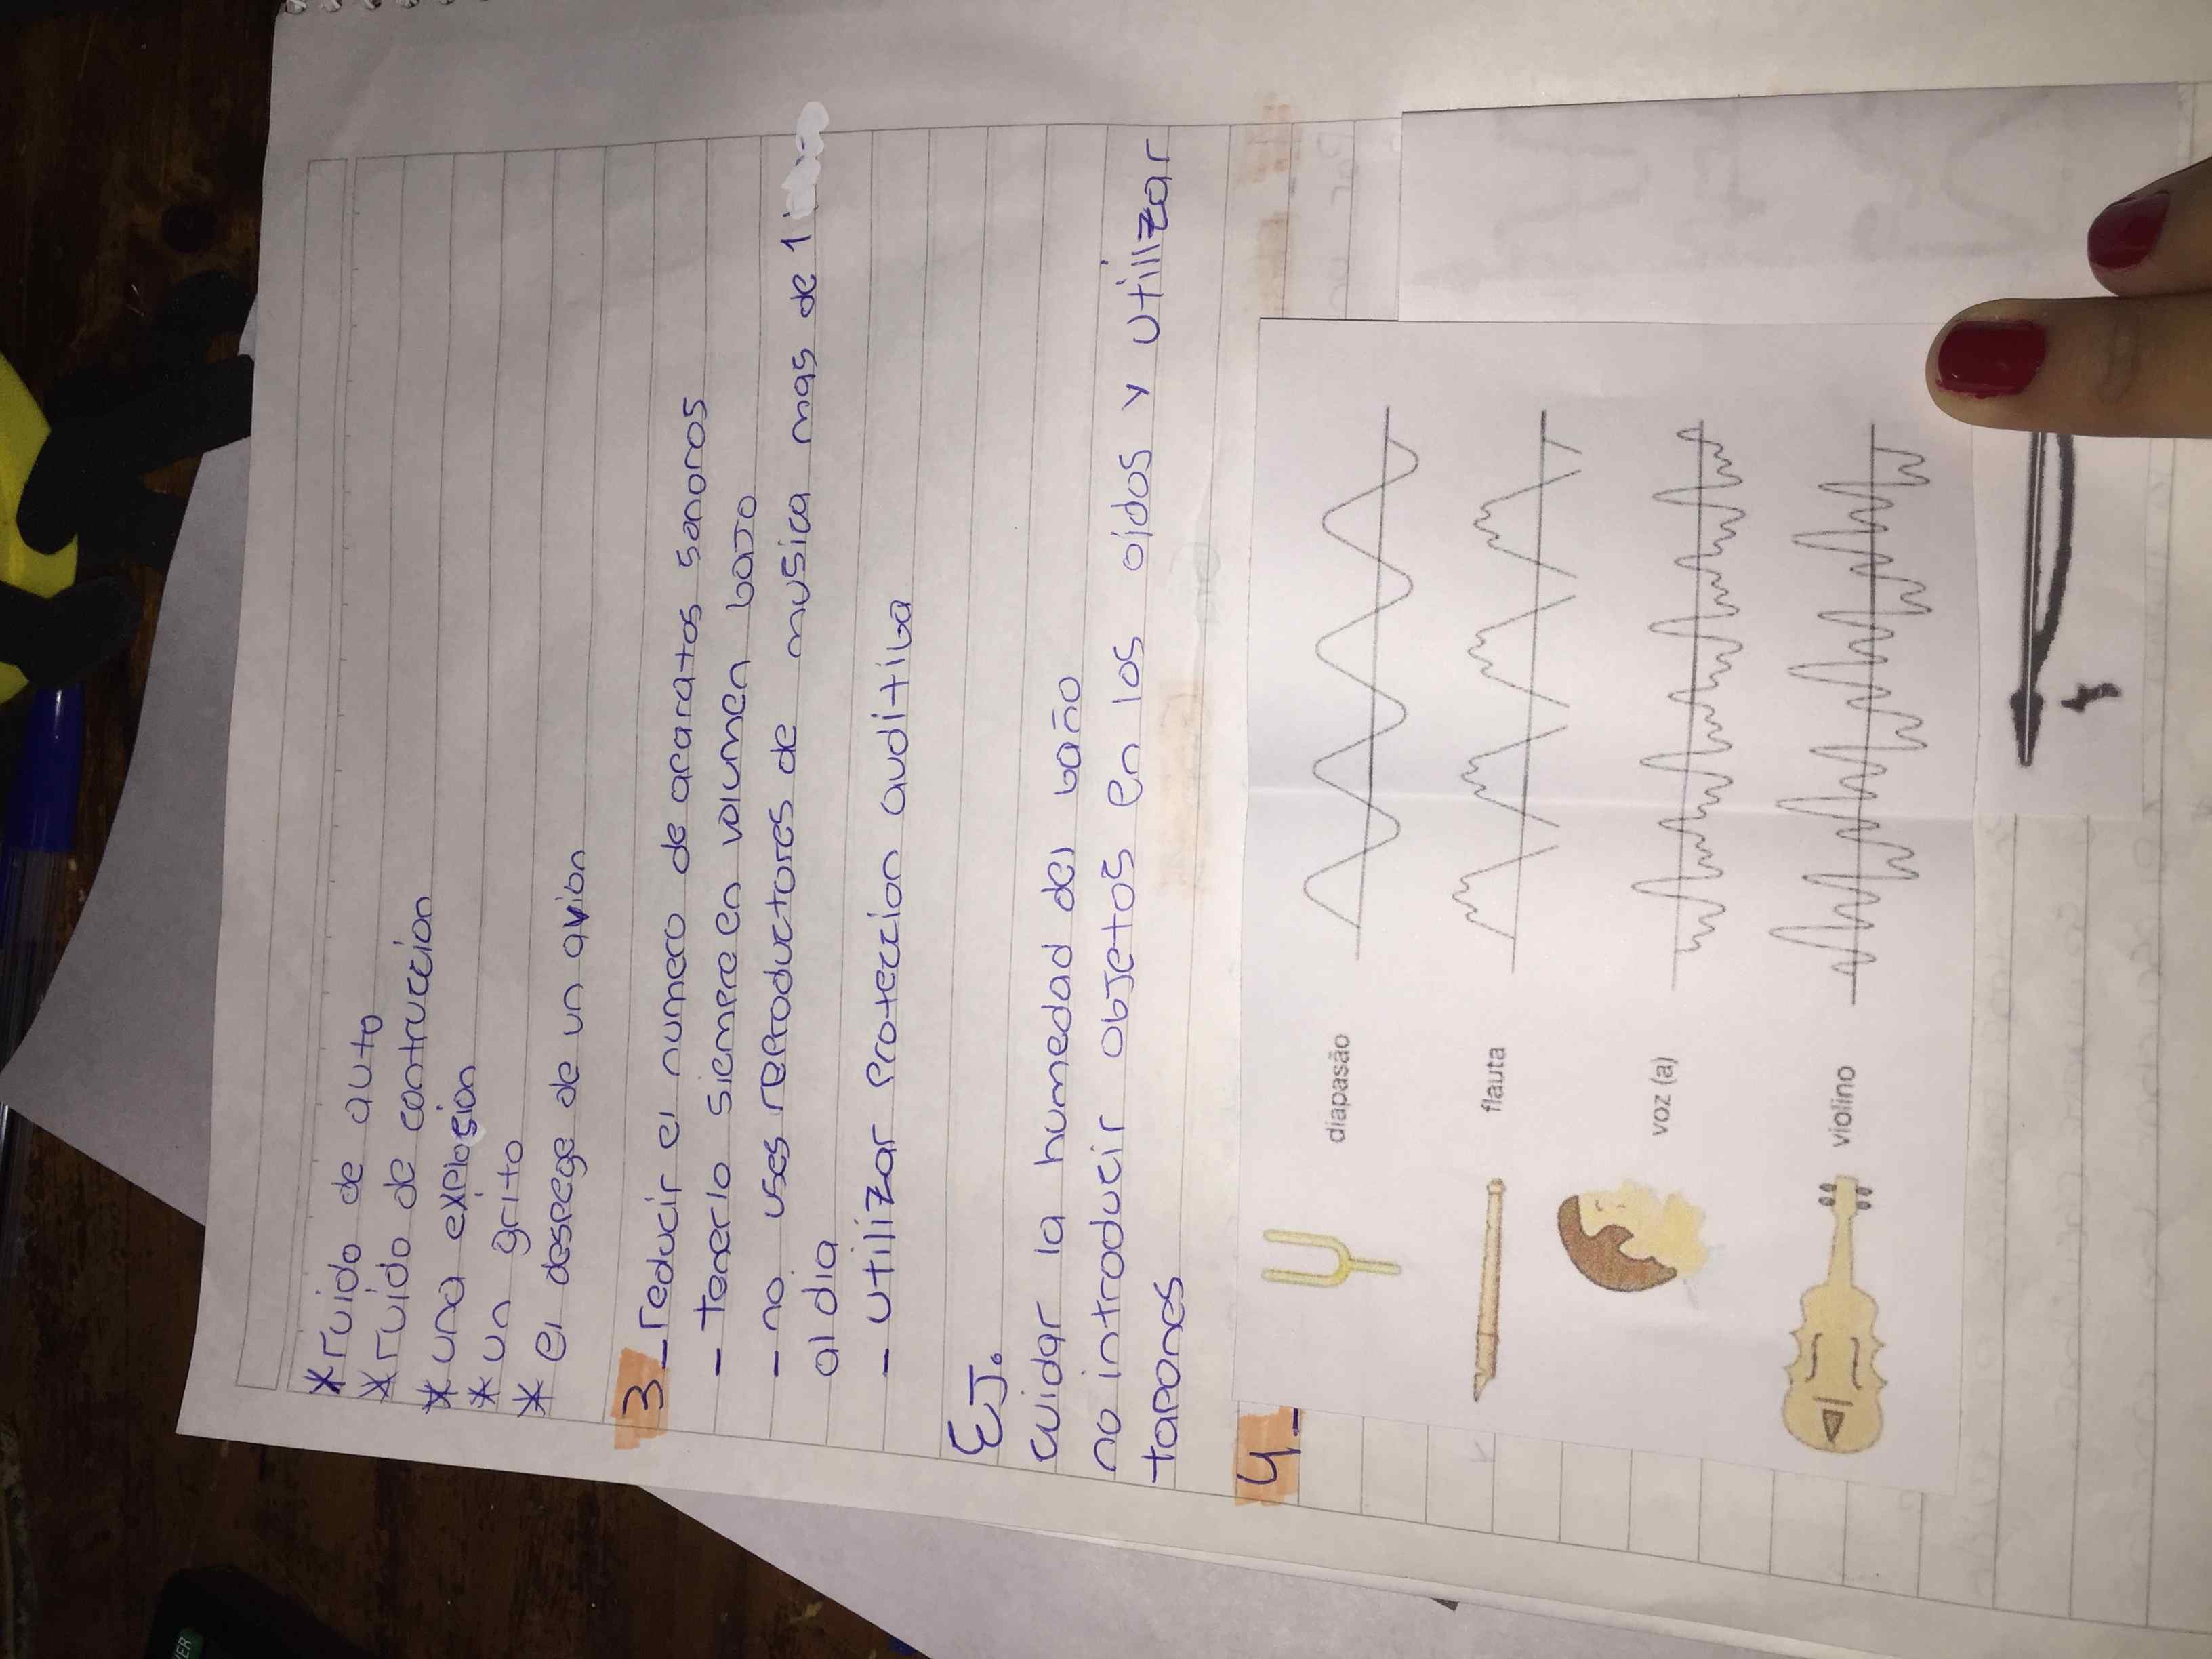 * ruido de auto
* ruido de contruccion
* una explosion
* un grito
* el despege de un avion
3 - reducir el numero de aparatos sonoros
- tenerlo siempre en volumen bajo
- no uses reproductores de musica mas de 1
al dia
- utilizar proteccion auditiva
EJ.
cuidar la humedad del baño
no introducir objetos en los oídos y utilizar
tapones
4-
diapasão
flauta
voz (a)
violino